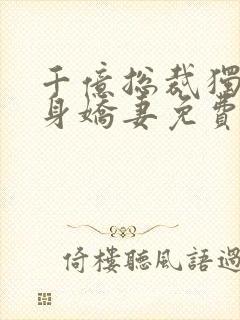 千億總裁獨
身嬌妻免費
倚樓聽風語過